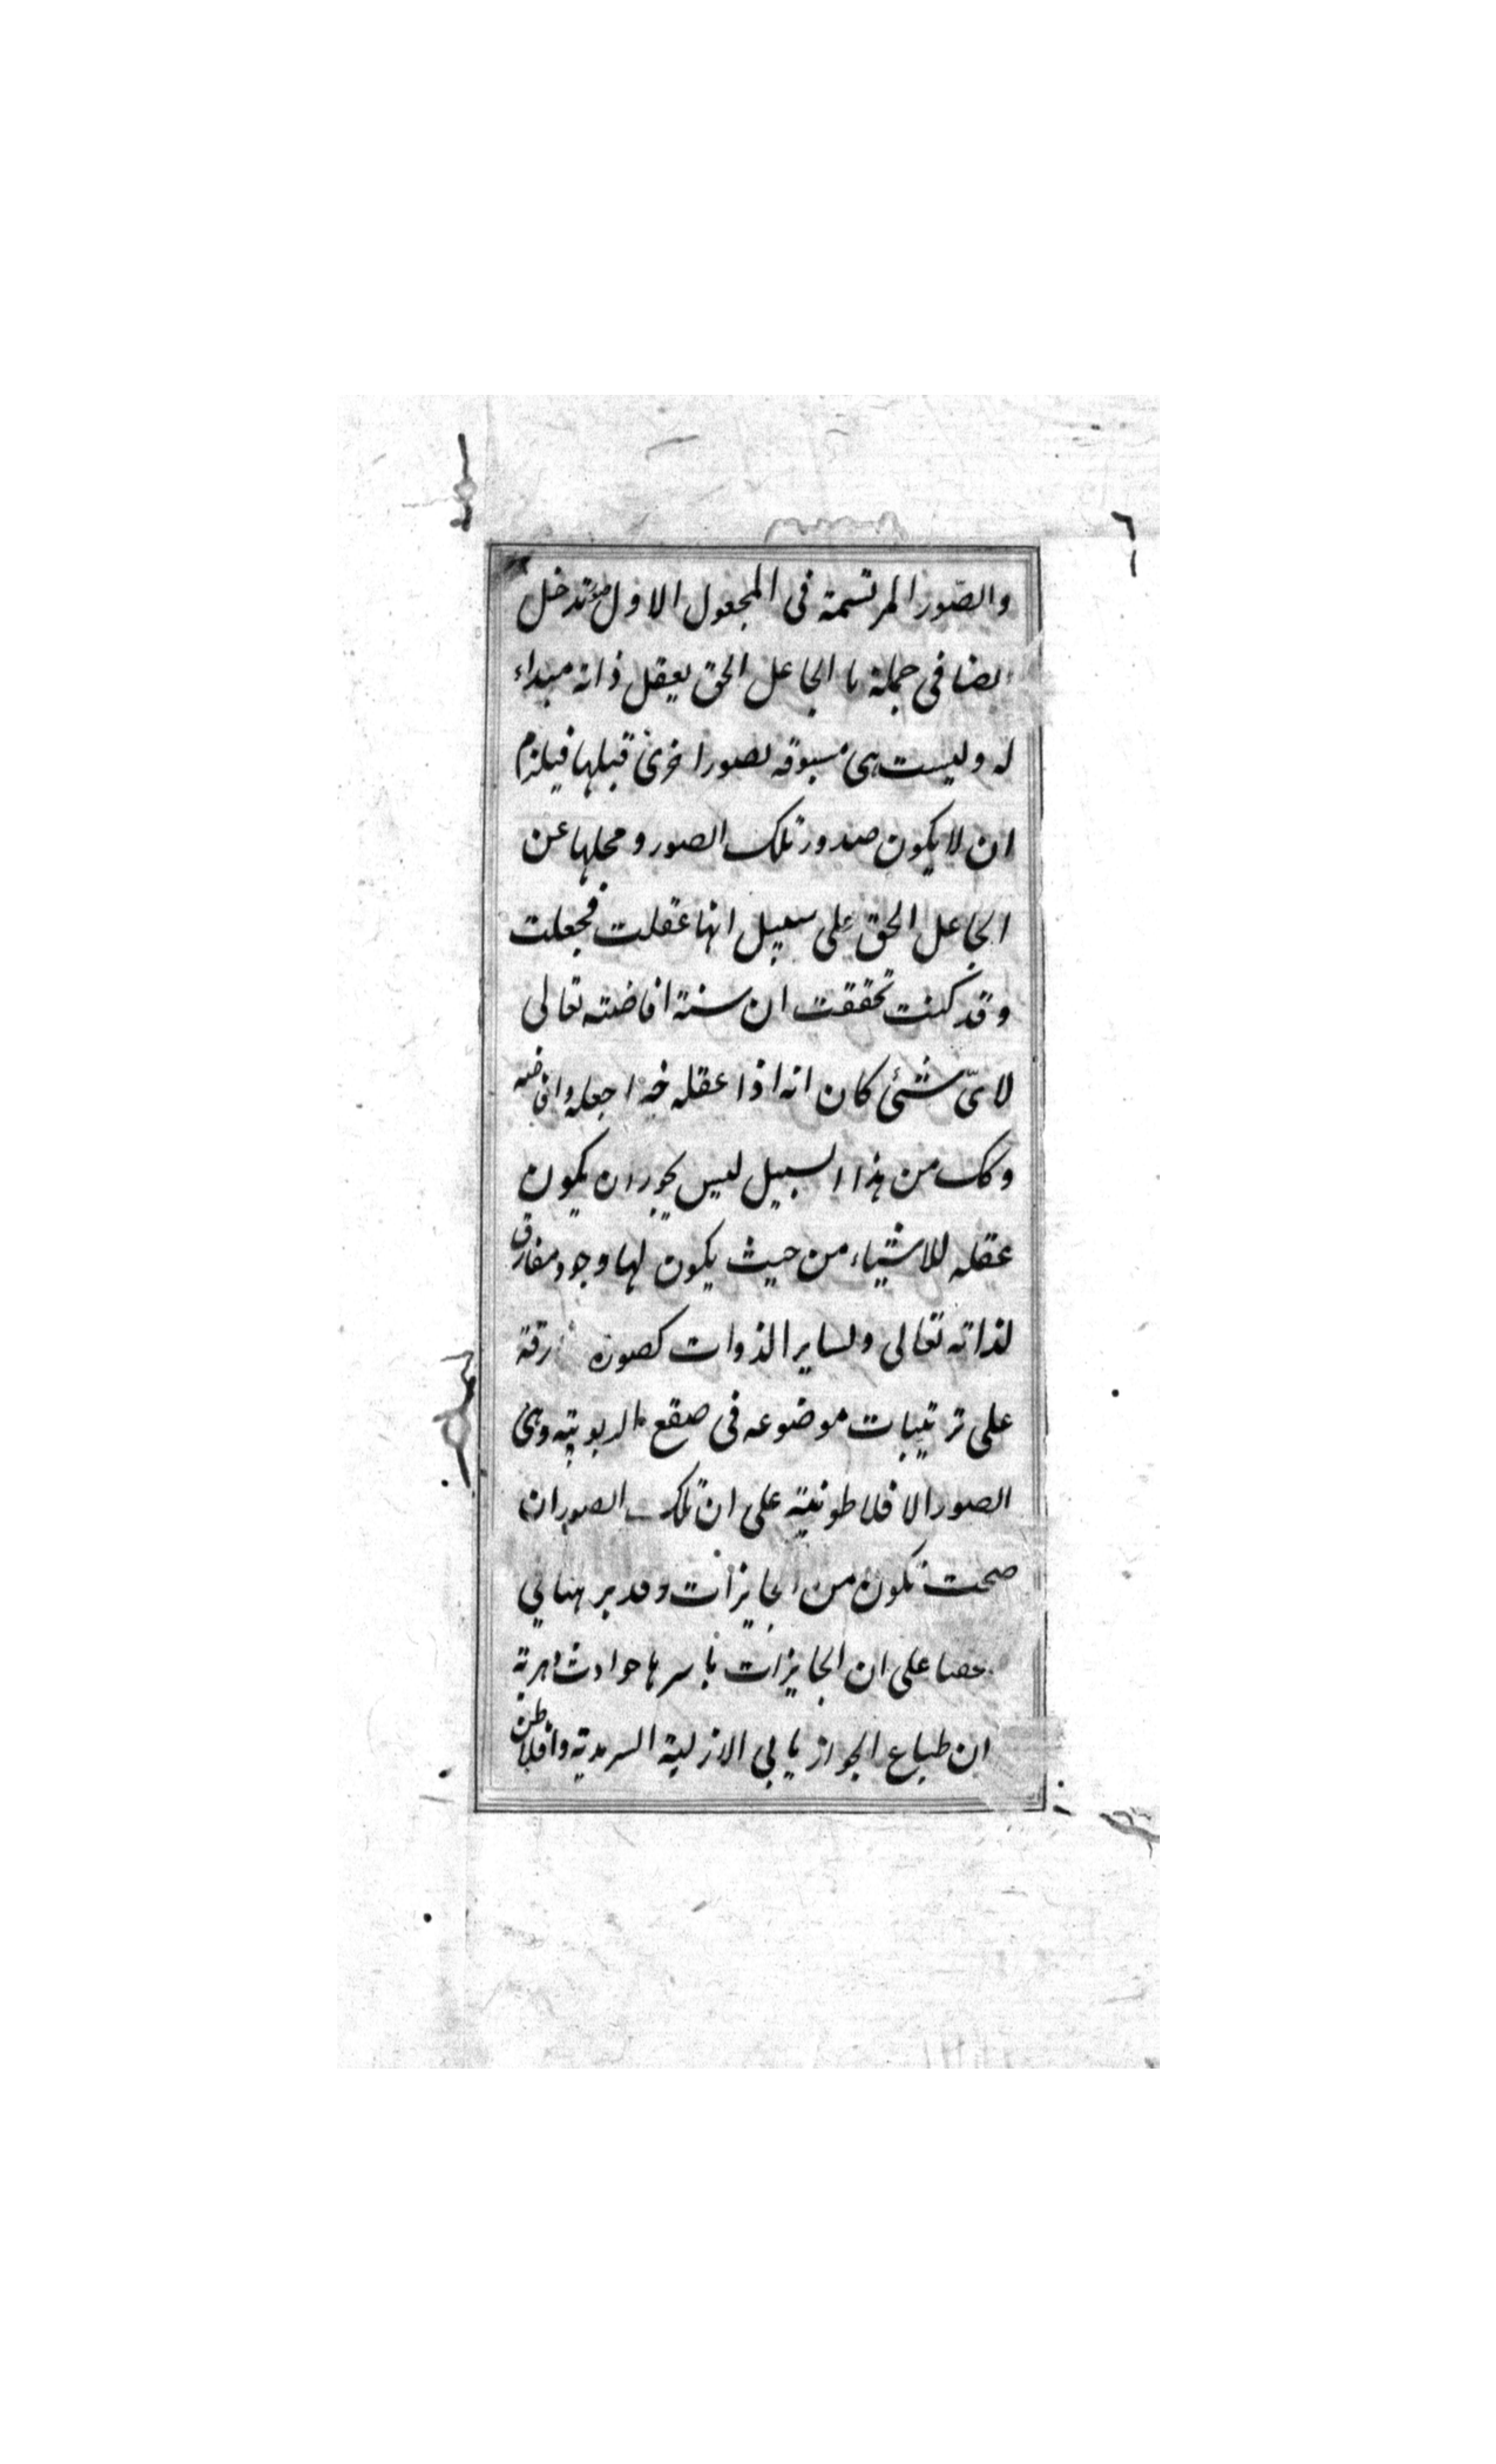 والصّور المرتسمة فى المجعول الاول تدخل
ايضا فى جملة ما الجاعل الحق يعقل ذاته مبداء
له وليست هى مسبوقه بصور اخرى قبلها فيلزم
ان لا يكون صدور تلك الصور ومحلها عن
الجاعل الحق على سبيل انها عقلت فجعلت
وقد كنت تحققت ان سنة افاضته تعالى
لاىّ شئ كان انه اذا عقله خيرا جعله وافاضه
وكك من هذا السبيل ليس يجوز ان يكون
عقله للاشياء من حيث يكون لها وجود مفارق
لذاته تعالى ولساير الذوات كصورة رقة
على ترتيبات موضوعه فى صقع الربوبية وهى
الصور الافلاطونية على ان تلك الصور ان
صحت تكون من الجايزات وقد برهنا لى
على ان الجايزات باسرها حوادث دهرية
ان طباع الجواز يابى الازلية السرمدية وافلاطن